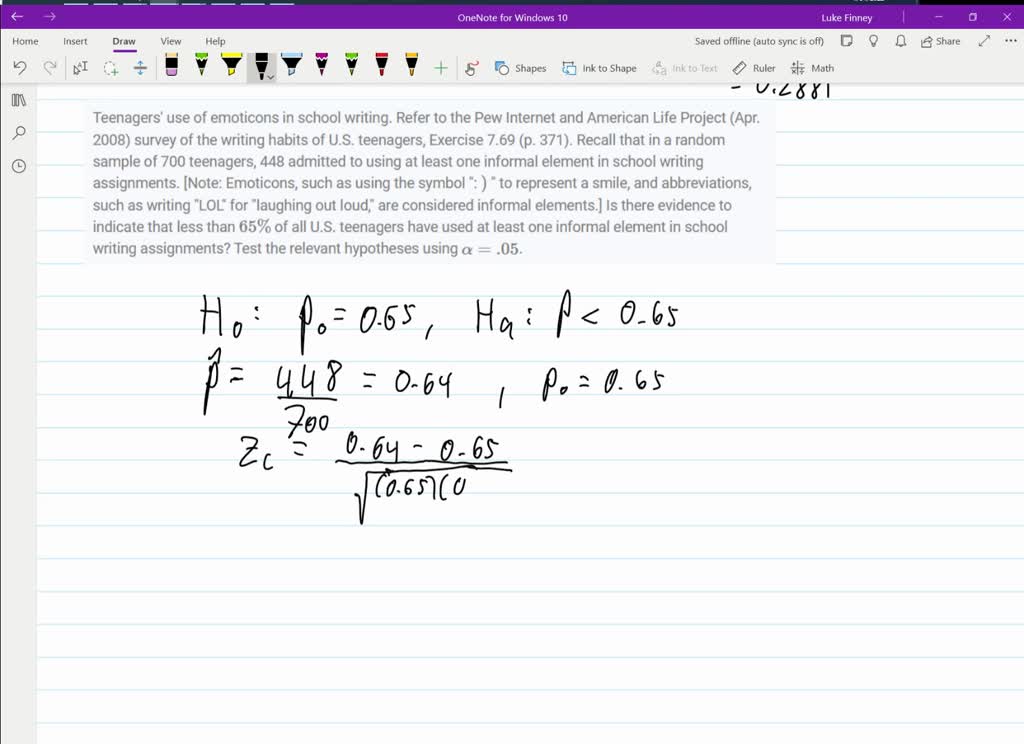 OneNote for Windows 10
Luke Finney
Home Insert Draw View Help
Saved offline (auto sync is off)
Share
Shapes Ink to Shape Ink to Text Ruler Math
Teenagers' use of emoticons in school writing. Refer to the Pew Internet and American Life Project (Apr.
2008) survey of the writing habits of U.S. teenagers, Exercise 7.69 (p. 371). Recall that in a random
sample of 700 teenagers, 448 admitted to using at least one informal element in school writing
assignments. [Note: Emoticons, such as using the symbol ": ) " to represent a smile, and abbreviations,
such as writing "LOL" for "laughing out loud," are considered informal elements.] Is there evidence to
indicate that less than 65% of all U.S. teenagers have used at least one informal element in school
writing assignments? Test the relevant hypotheses using α = .05.
H₀: p₀ = 0.65, Hₐ: p < 0.65
p̂ = 448/700 = 0.64, p₀ = 0.65
Z_c = 0.64 - 0.65
√(0.65)(0